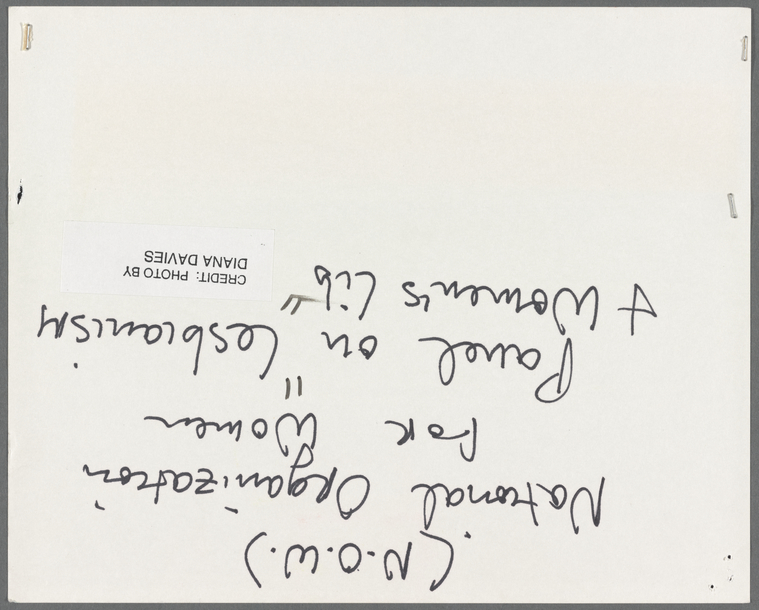 (N.O.W.)
National Organization
for Women
Panel on "Lesbianism
+ Women's Lib"
CREDIT: PHOTO BY
DIANA DAVIES